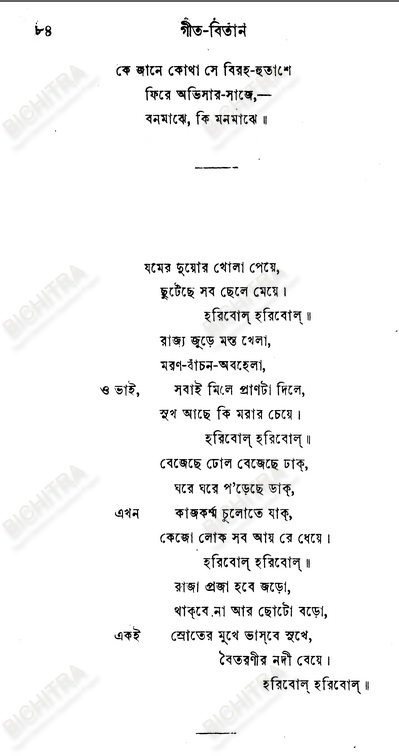 ৮৪ গীত-বিতান
কে জানে কোথা সে বিরহ-হুতাশে
ফিরে অভিসার-সাজে,—
বনমাঝে, কি মনমাঝে॥
যমের দুয়োর খোলা পেয়ে,
ছুটেছে সব ছেলে মেয়ে।
হরিবোল্ হরিবোল্॥
রাজ্য জুড়ে মস্ত খেলা,
মরণ-বাঁচন-অবহেলা,
ও ভাই, সবাই মিলে প্রাণটা দিলে,
সুখ আছে কি মরার চেয়ে।
হরিবোল্ হরিবোল্॥
বেজেছে ঢোল বেজেছে ঢাক্,
ঘরে ঘরে প’ড়েছে ডাক্,
এখন কাজকর্ম্ম চুলোতে যাক্,
কেজো লোক সব আয় রে ধেয়ে।
হরিবোল্ হরিবোল্॥
রাজা প্রজা হবে জড়ো,
থাক্‌বে না আর ছোটো বড়ো,
একই স্রোতের মুখে ভাস্‌বে সুখে,
বৈতরণীর নদী বেয়ে।
হরিবোল্ হরিবোল্॥
BICHITRA
BICHITRA
BICHITRA
BICHITRA
BICHITRA
BICHITRA
BICHITRA
BICHITRA